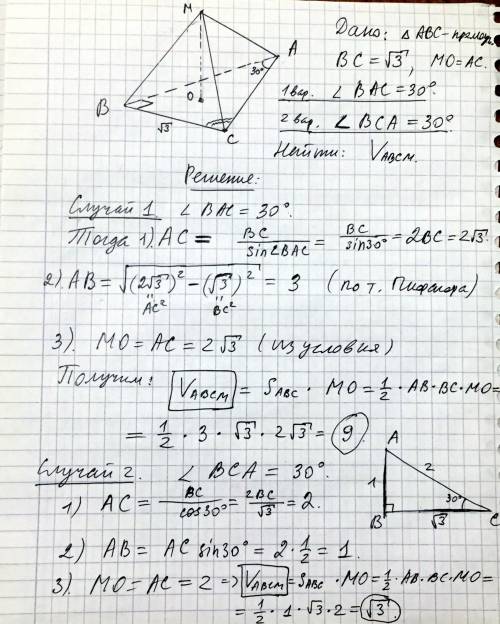 M
A
B
C
O
30°
√3
Дано: △ABC-прямоуг.
BC=√3, MO=AC.
1 вар. ∠BAC=30°.
2 вар. ∠BCA=30°.
Найти: V_ABCM.
Решение:
Случай 1 ∠BAC=30°.
Тогда 1). AC = BC/sin∠BAC = BC/sin30° = 2BC = 2√3
2). AB = √((2√3)² - (√3)²) = 3 (по т. Пифагора)
" AC² " BC²
3). MO = AC = 2√3 (из условия)
Получим: V_ABCM = S_ABC · MO = 1/2 · AB · BC · MO =
= 1/2 · 3 · √3 · 2√3 = 9.
Случай 2. ∠BCA = 30°.
1) AC = BC/cos30° = 2BC/√3 = 2.
2) AB = AC sin30° = 2 · 1/2 = 1.
3). MO = AC = 2 ⇒ V_ABCM = S_ABC · MO = 1/2 · AB · BC · MO =
= 1/2 · 1 · √3 · 2 = √3.
A
2
1
30°
B
√3
C